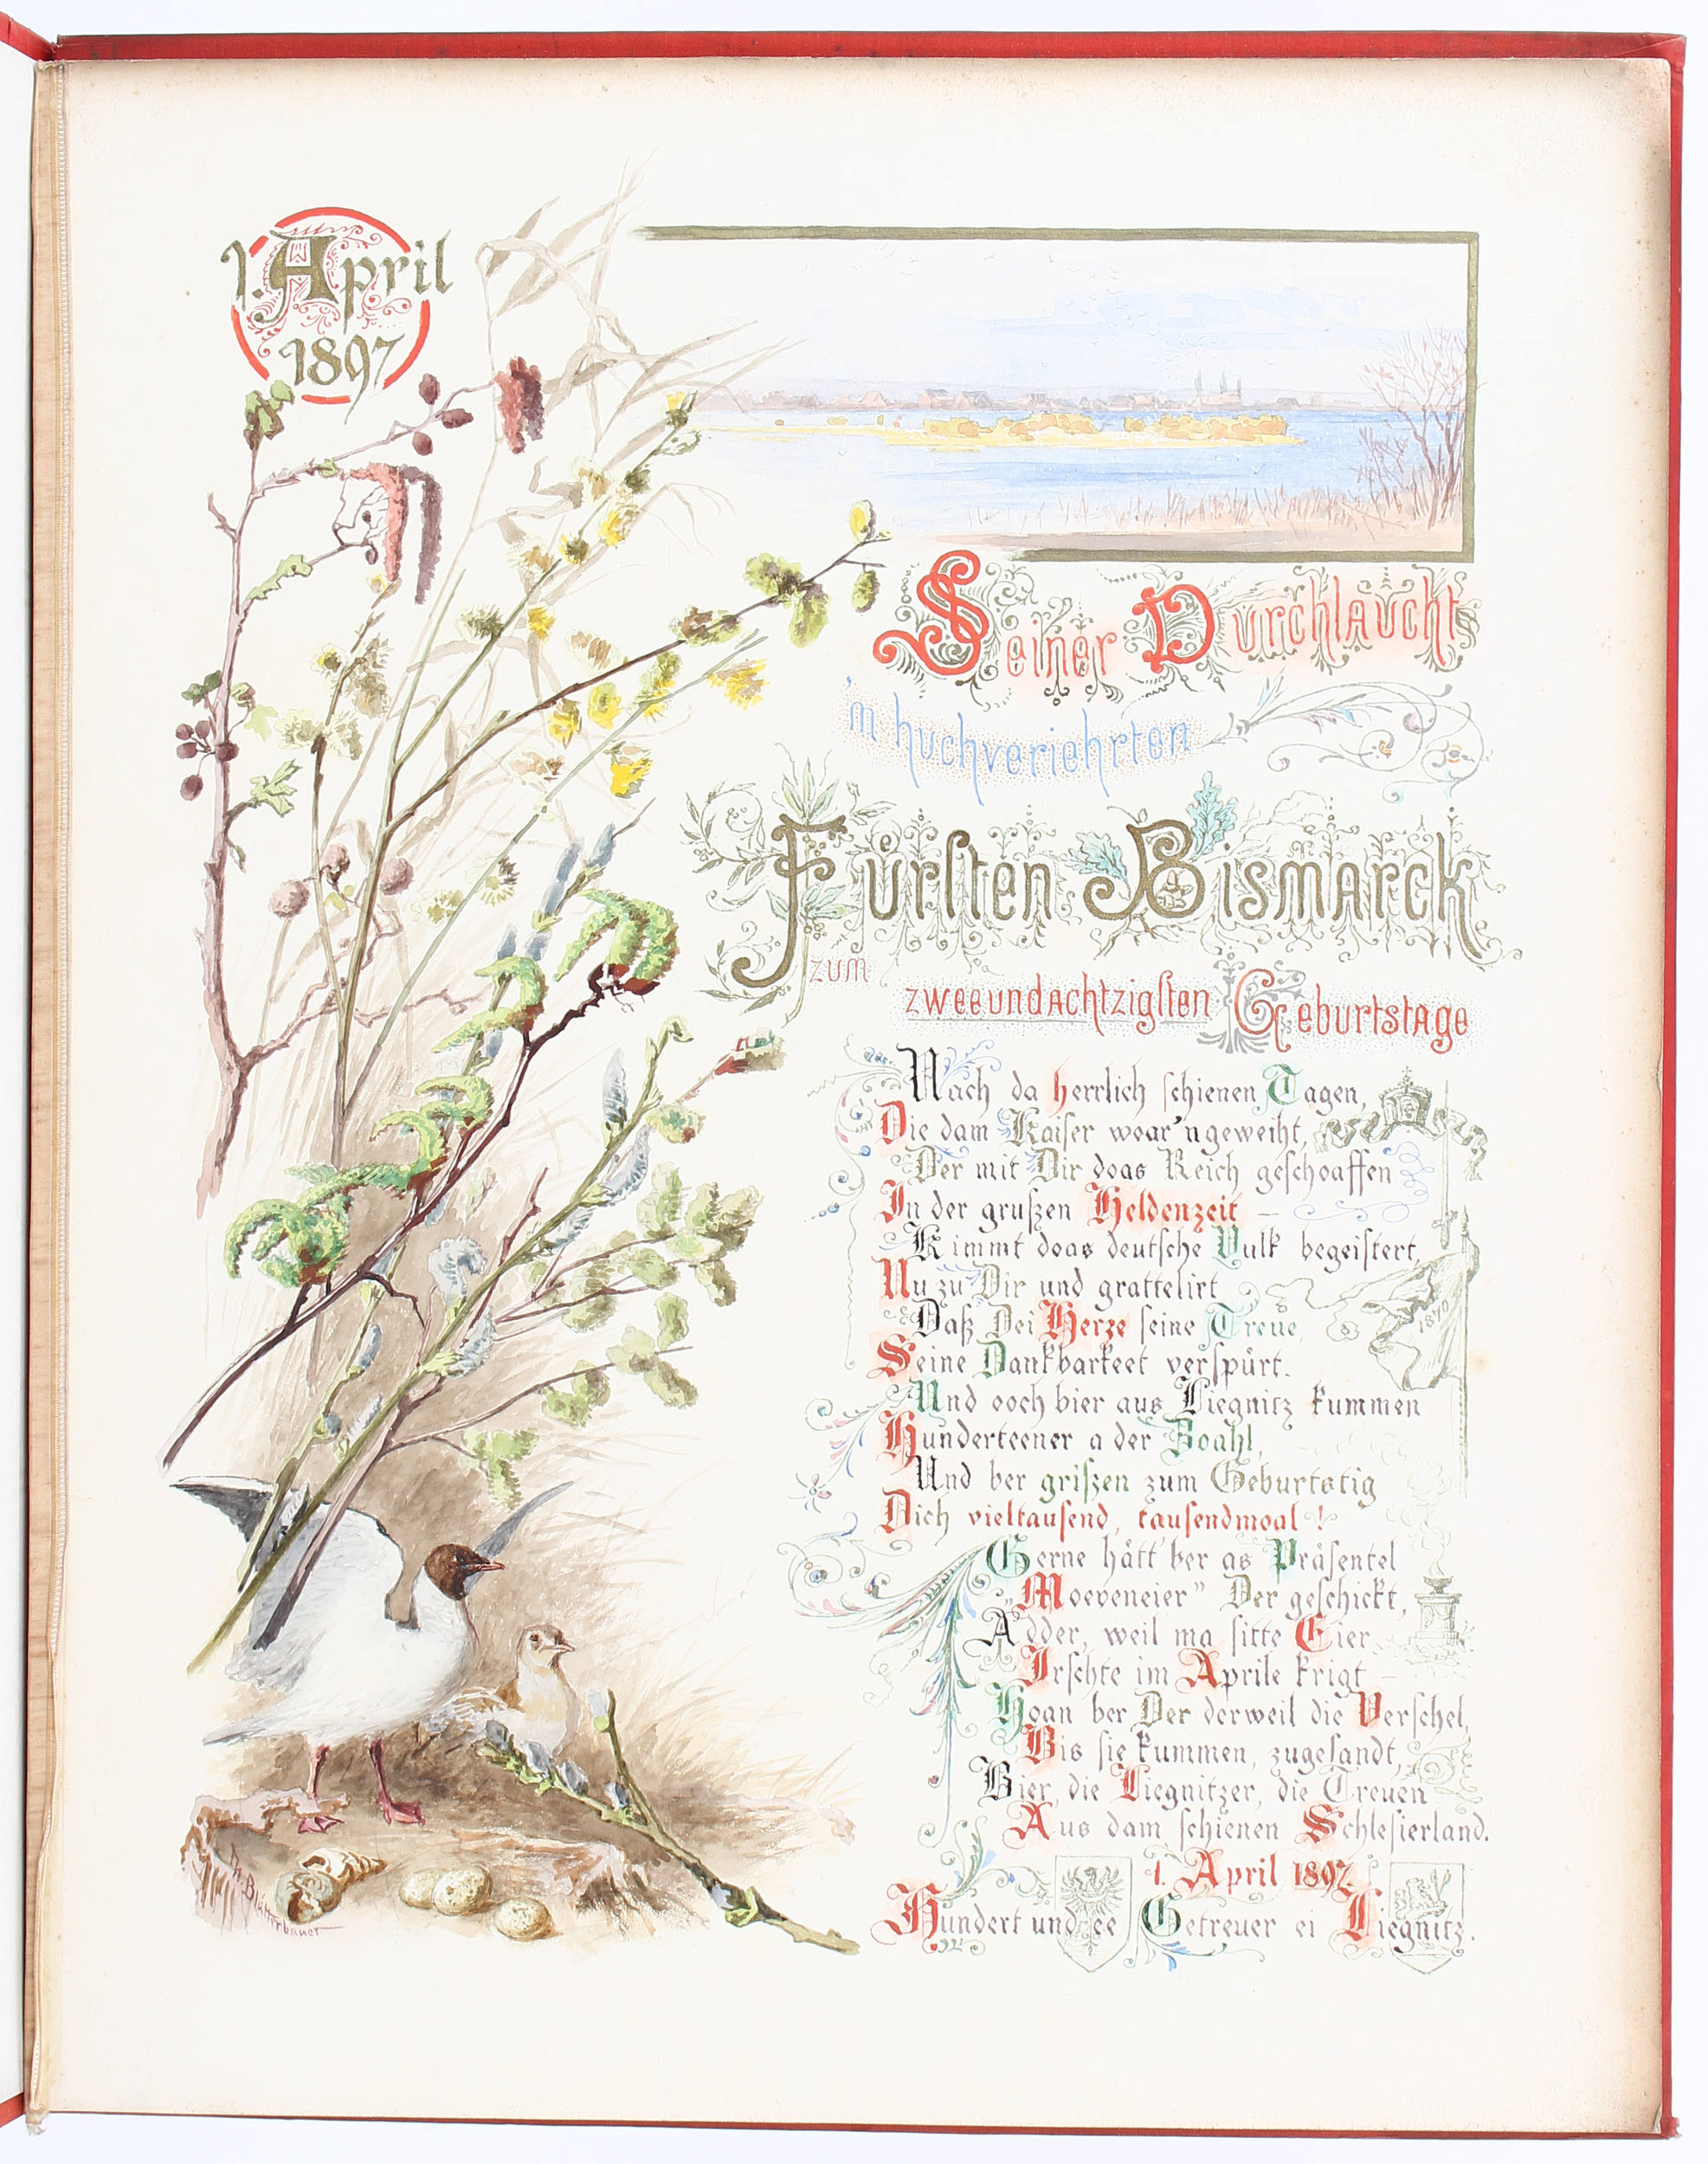 1. April
1897
Seiner Durchlaucht
'm huchveriehrten
Fürsten Bismarck
zum
zweeundachtzigsten Geburtstage
Nach da herrlich schienen Tagen,
Die dam Kaiser woar'n geweiht,
Der mit Dir doas Reich geschoaffen
In der grußen Heldenzeit –
Kimmt doas deutsche Vulk begeistert
Nu zu Dir und grattelirt
Daß Dei Herze seine Treue,
Seine Dankbarkeet verspürt.
Und ooch bier aus Liegnitz kummen
Hunderteener a der Zoahl,
Und ber grißen zum Geburtstig
Dich vieltausend, tausendmoal!
Gerne hätt' ber as Präsentel
„Moeveneier" Der geschickt,
Adder, weil ma sitte Eier
Irschte im Aprile krigt –
Hoan ber Der derweil die Verschel,
Bis sie kummen, zugesandt,
Bier, die Liegnitzer, die Treuen
Aus dam schienen Schlesierland.
1. April 1897.
Hundert und ee Getreuer ei Liegnitz.
1870
Th. Blätterbauer